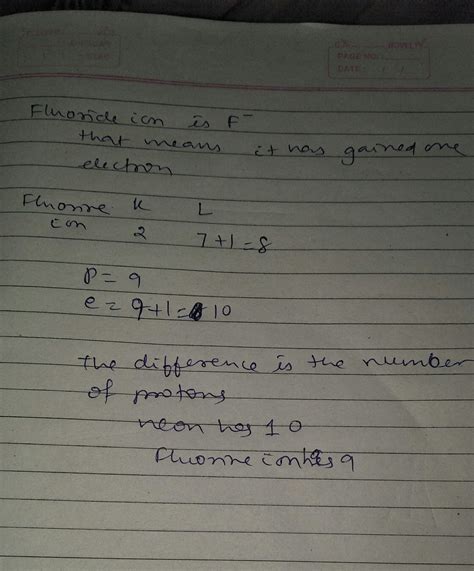 PAGE NO.
DATE: / /
Fluoride ion is F⁻
that means it has gained one
electron
Fluorine K L
ion 2 7+1=8
P= 9
e= 9+1= 10
the difference is the number
of protons
neon has 10
Fluorine ion has 9